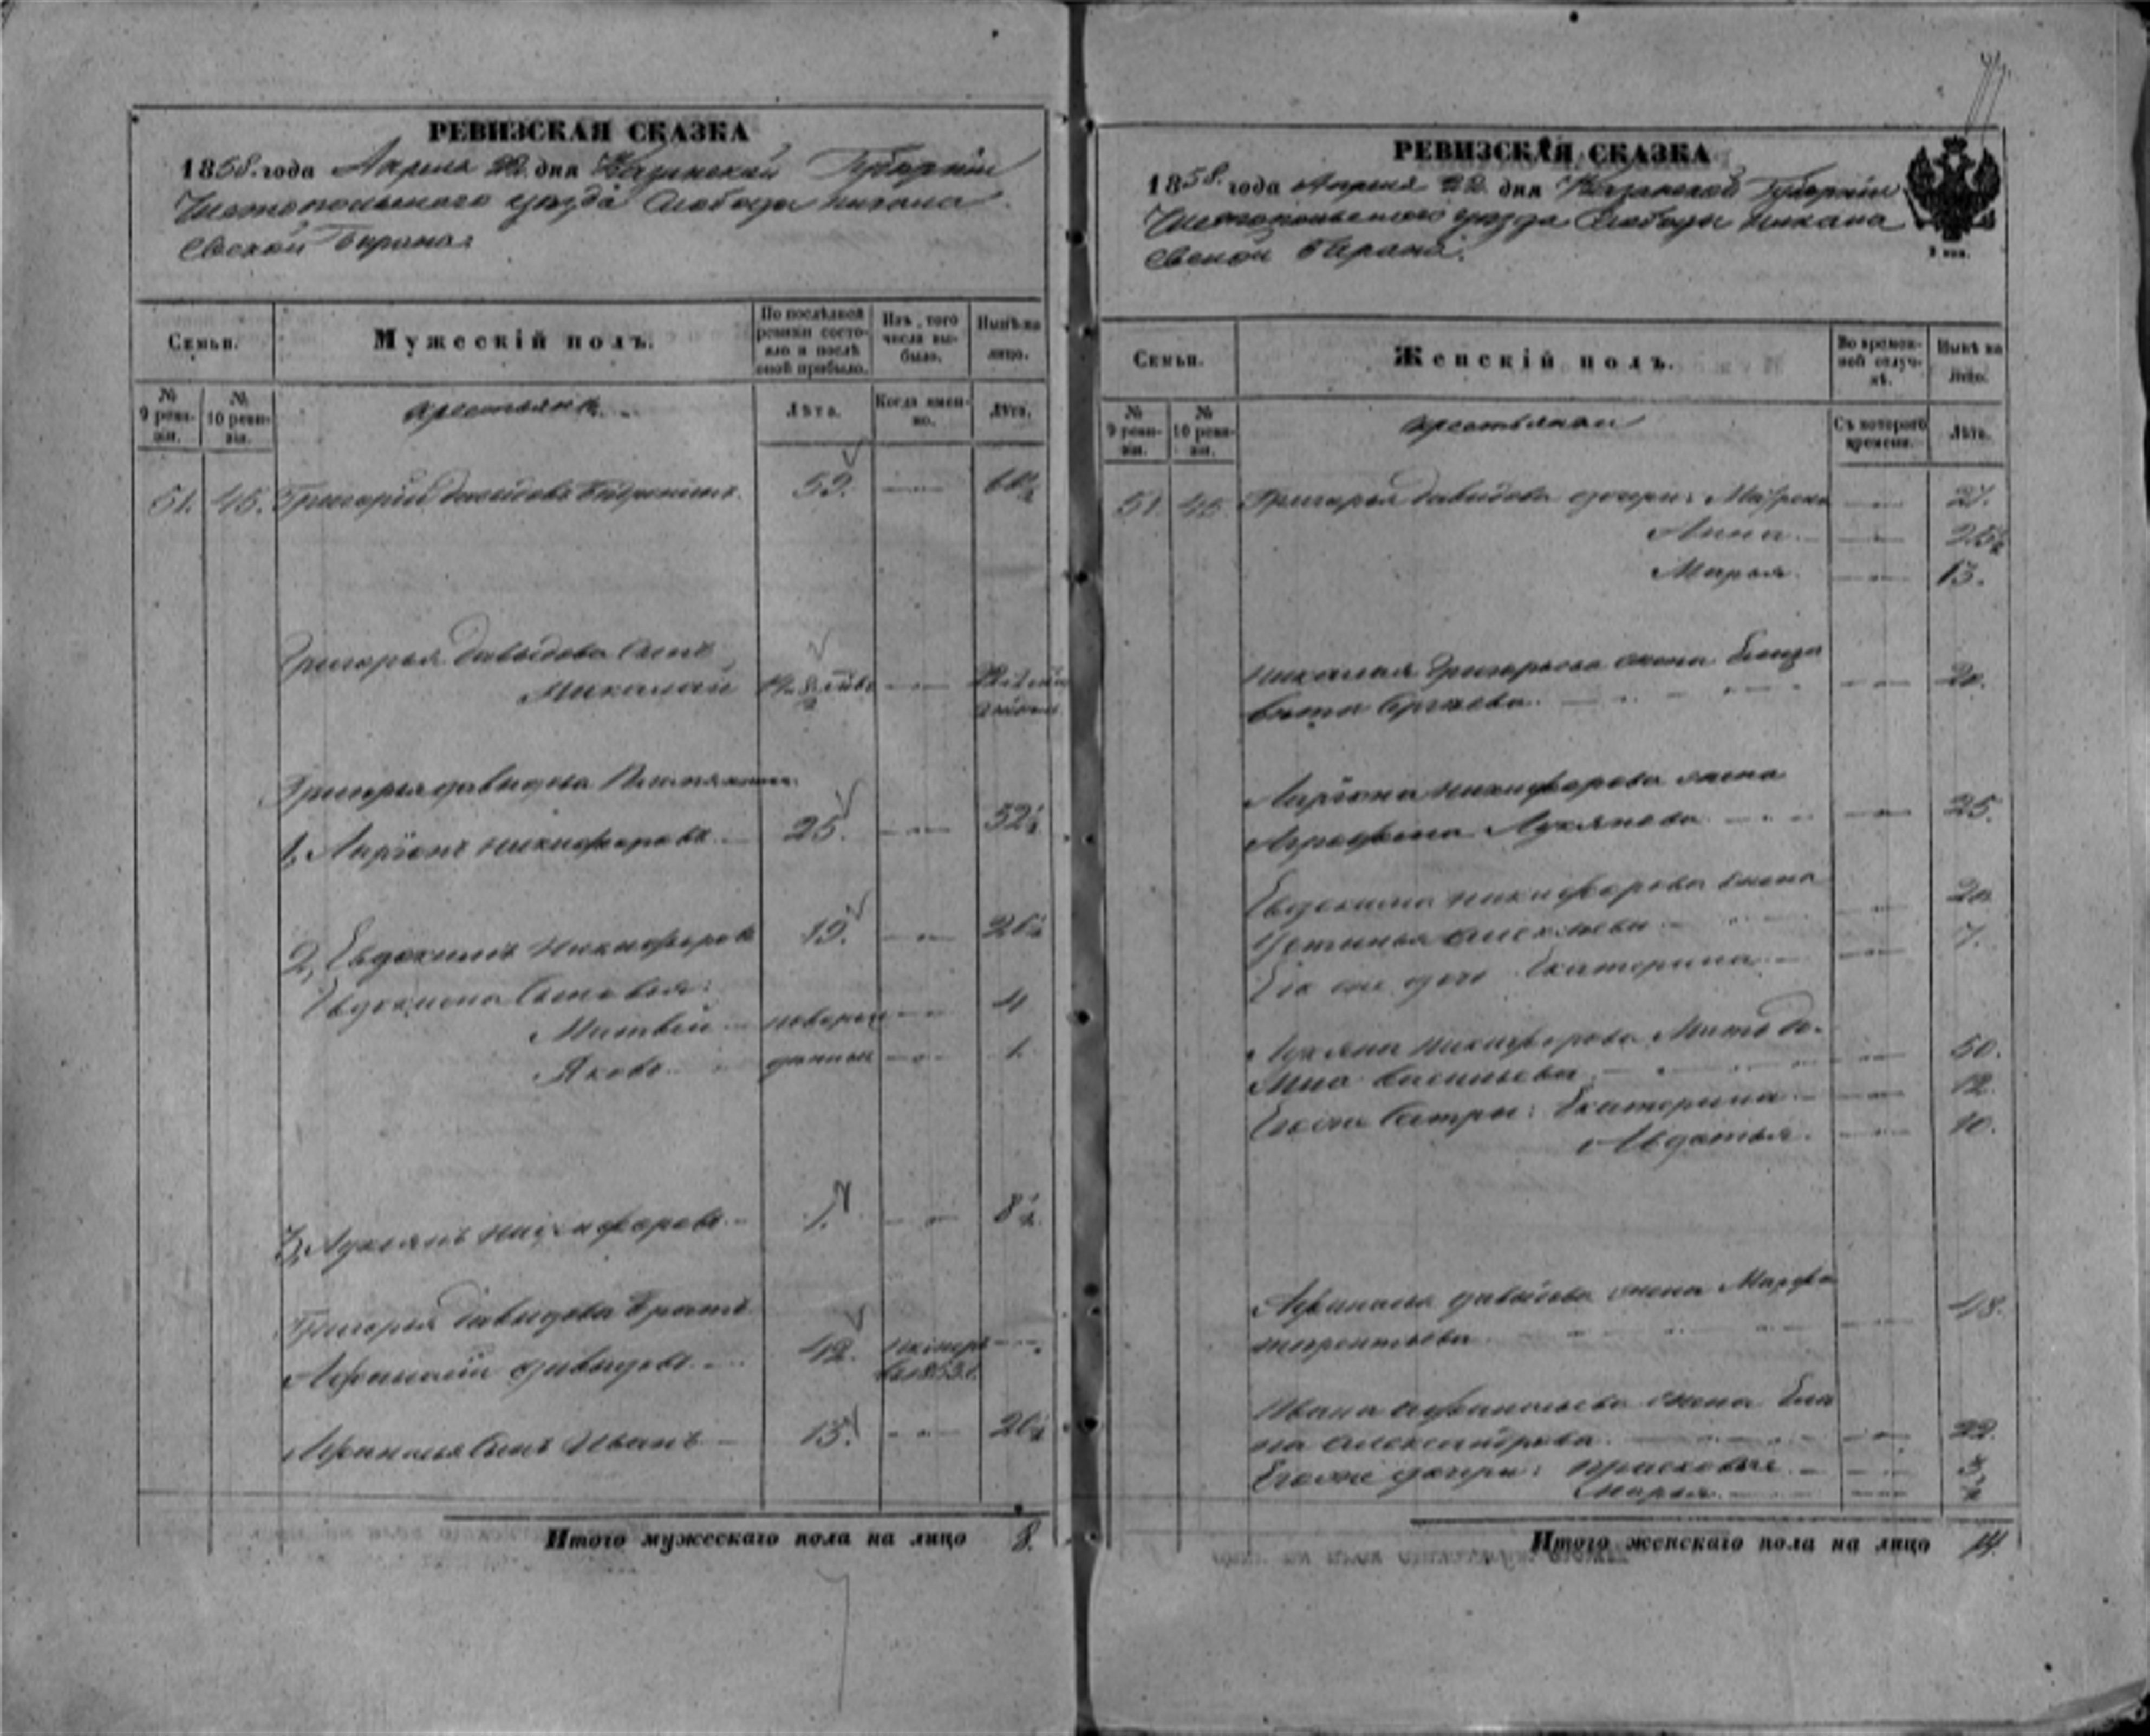 РЕВИЗСКАЯ СКАЗКА
1858 года Апреля 22 дня Казанской Губернiи
Чистопольскаго уезда Слободы Никола
евской Барана
Семьи.
Мужескiй полъ.
По послѣдней ревизiи состояло и послѣ оной прибыло.
Изъ того числа выбыло.
Нынѣ на лицо.
№ 9 ревизiи.
№ 10 ревизiи.
крестьяне
Лѣта.
Когда именно.
Лѣта.
51. 45. Григорiй Давыдовъ 59.
Григорья Давыдова сынъ
Миколай
Григорья Давыдова Племянники
1, Ларiонъ Никифоровъ 25.
2, Евдокимъ Никифоровъ 19.
Евдокима Сыновья:
Матвей 4
Яковъ 1.
3, Лукоянъ Никифоровъ 1.
Григорья Давыдова Братъ
Афанасiй Давыдовъ 42.
Афанасья Сынъ Иванъ
Итого мужескаго пола на лицо 8.
РЕВИЗСКАЯ СКАЗКА
1858 года Апреля 22 дня Казанской Губернiи
Чистопольскаго уезда Слободы Никола
евской Барана.
Семьи.
Женскiй полъ.
Во временной отлучкѣ.
Нынѣ на лицо.
№ 9 ревизiи.
№ 10 ревизiи.
крестьянки
Съ котораго времени.
Лѣта.
51. 45. Григорья Давыдова дочери: Маврена
Анна
Марья 13.
Николая Григорьева жена Елиза
вета 20.
Ларiона Никифорова жена
Аграфена Лукянова 25.
Евдокима Никифорова жена
Устинья Алексеева
Ево же дочь Екатерина 7.
Лукяна Никифорова Мать До
мна Васильева 50.
Его же Сестры: Екатерина 12.
Авдотья 10.
Афанасья Давыдова жена Марфа
терентьева 48.
Ивана Афанасьева жена Еле
на Александрова 22.
Его же дочери: Прасковья 3.
Марья
Итого женскаго пола на лицо 14.